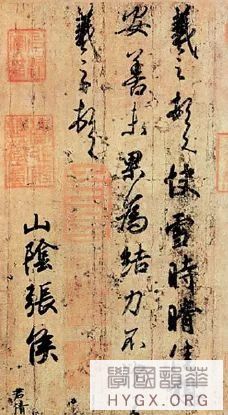 羲之頓首快雪時晴佳
安善未果為結力不
羲之頓首
山陰張侯
君倩
學國韻華
HYGX.ORG